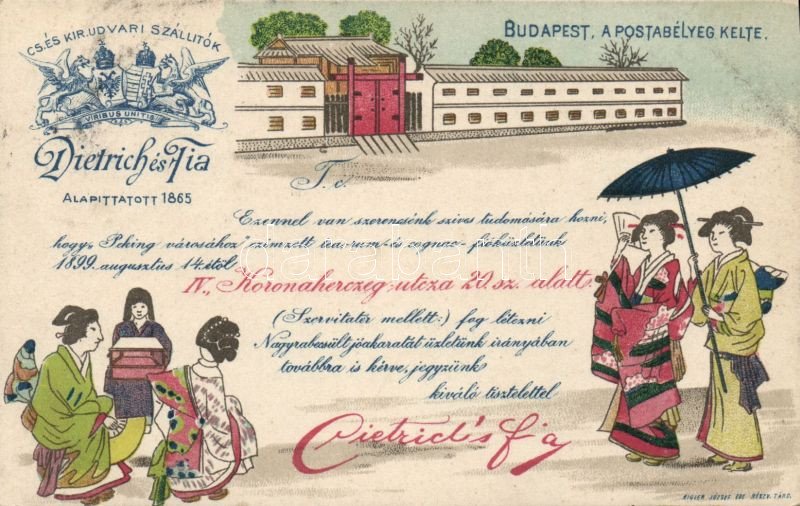 CS. ÉS KIR. UDVARI SZÁLLITÓK
VIRIBUS UNITIS
Dietrich és Fia
ALAPITTATOTT 1865
BUDAPEST, A POSTABÉLYEG KELTE.
T. c.
Ezennel van szerencsénk szives tudomására hozni,
hogy „Peking városához” czimzett tea, rum- és cognac- fióküzletünk
1899. augusztus 14.étől
IV., Koronaherczeg-utcza 20. sz. alatt
(Szervitatér mellett.) fog létezni
Nagyrabesült jóakaratát üzletünk irányában
továbbra is kérve, jegyzünk
kiváló tisztelettel
Dietrich és Fia
darabanth
RIGLER JÓZSEF EDE RÉSZV. TÁRS.